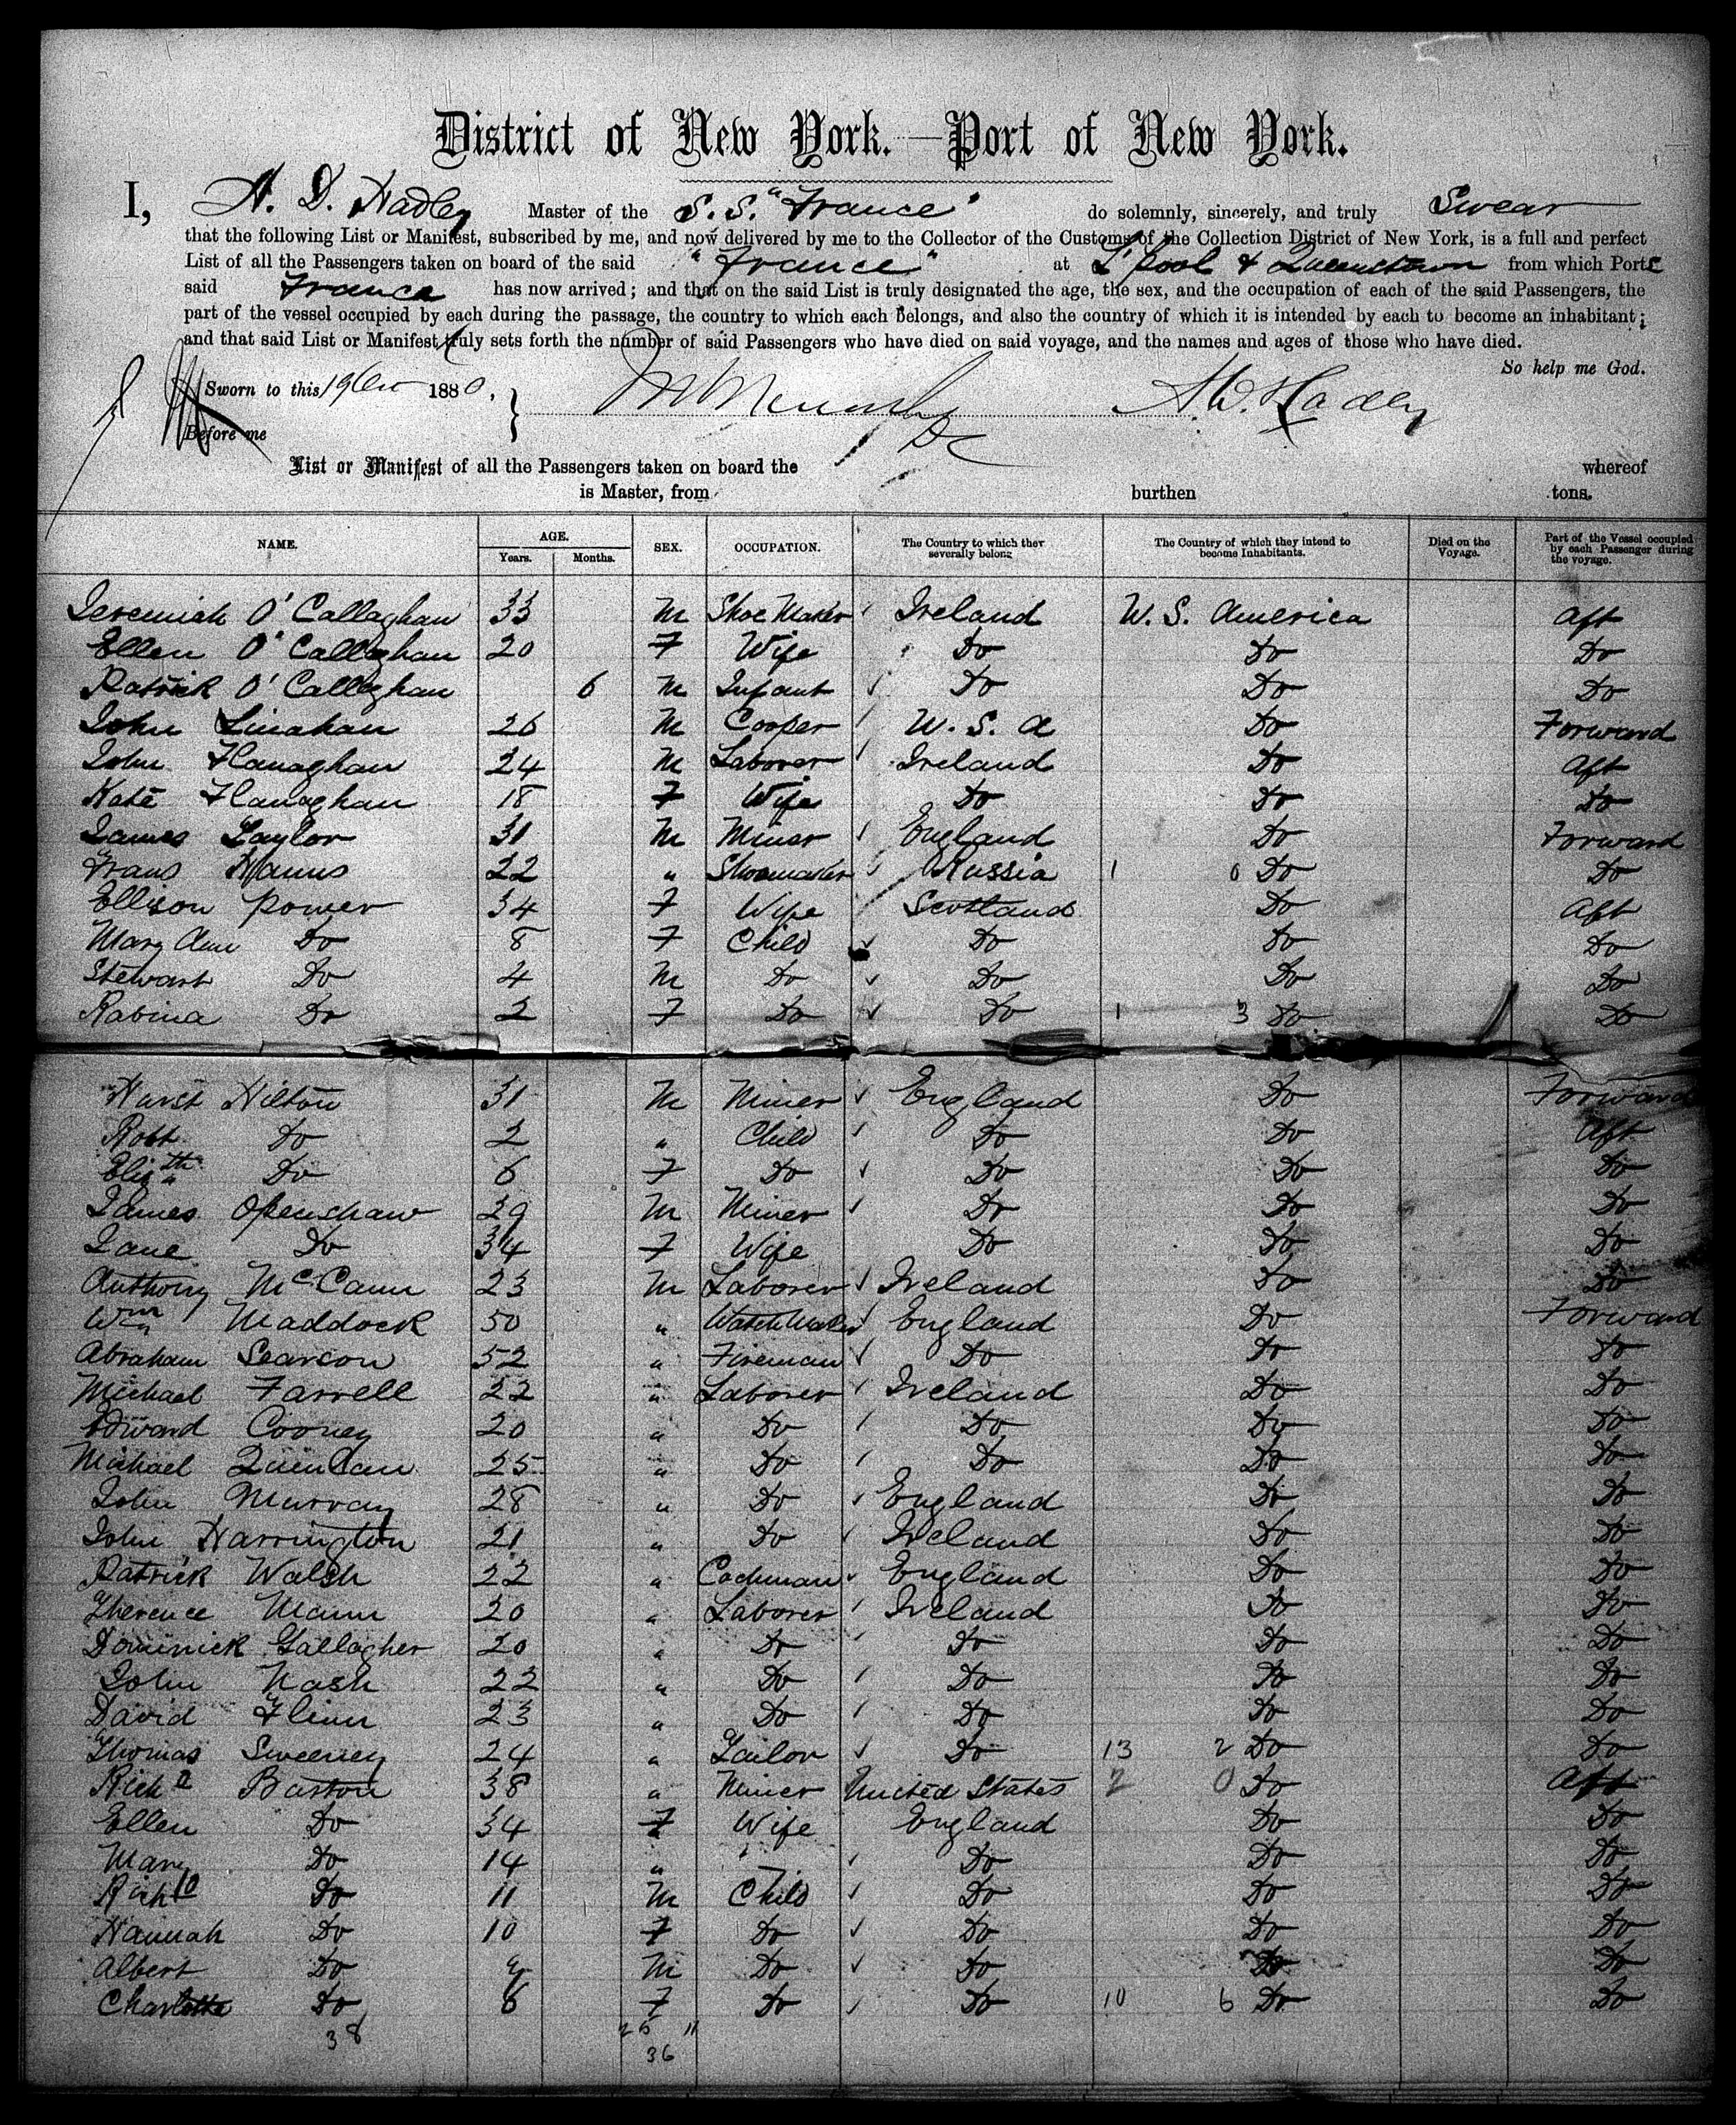 District of New York.—Port of New York.
I, A. D. Hadley Master of the S.S. "France" do solemnly, sincerely, and truly Swear
that the following List or Manifest, subscribed by me, and now delivered by me to the Collector of the Customs of the Collection District of New York, is a full and perfect
List of all the Passengers taken on board of the said "France" at L'pool & Queenstown from which Ports
said France has now arrived; and that on the said List is truly designated the age, the sex, and the occupation of each of the said Passengers, the
part of the vessel occupied by each during the passage, the country to which each belongs, and also the country of which it is intended by each to become an inhabitant;
and that said List or Manifest truly sets forth the number of said Passengers who have died on said voyage, and the names and ages of those who have died.
So help me God.
Sworn to this 19 1880, A. W. Hadley
Before me
List or Manifest of all the Passengers taken on board the whereof
is Master, from burthen tons.
NAME. AGE. Years. Months. SEX. OCCUPATION. The Country to which they severally belong The Country of which they intend to become Inhabitants. Died on the Voyage. Part of the Vessel occupied by each Passenger during the voyage.
Jeremiah O'Callaghan 33 M Shoe Maker Ireland U. S. America Aft
Ellen O'Callaghan 20 F Wife Do Do Do
Patrick O'Callaghan 6 M Infant Do Do Do
John Linahan 26 M Cooper U. S. A Do Forward
John Flanaghan 24 M Laborer Ireland Do Aft
Kate Flanaghan 18 F Wife Do Do Do
James Taylor 31 M Miner England Do Forward
Frans Hanns 22 " Shoemaker Russia 1 0 Do Do
Ellison Power 34 F Wife Scotland Do Aft
Mary Ann Do 8 F Child Do Do Do
Stewart Do 4 M Do Do Do Do
Rabina Do 2 F Do Do 1 3 Do Do
Hurst Hilton 31 M Miner England Do Forward
Robt Do 2 " Child Do Do Aft
Elizth Do 6 F Do Do Do Do
James Openshaw 29 M Miner Do Do Do
Jane Do 34 F Wife Do Do Do
Anthony McCann 23 M Laborer Ireland Do Do
Wm Maddock 50 " Watch Maker England Do Forward
Abraham Searson 52 " Fireman Do Do Do
Michael Farrell 22 " Laborer Ireland Do Do
Edward Cooney 20 " Do Do Do Do
Michael Quinlan 25 " Do Do Do Do
John Murray 28 " Do England Do Do
John Harrington 21 " Do Ireland Do Do
Patrick Walsh 22 " Cochman England Do Do
Therence Mann 20 " Laborer Ireland Do Do
Dominick Gallagher 20 " Do Do Do Do
John Nash 22 " Do Do Do Do
David Flinn 23 " Do Do Do Do
Thomas Sweeney 24 " Tailor Do 13 2 Do Do
Richd Barton 38 " Miner United States 2 0 Do Aft
Ellen Do 34 F Wife England Do Do
Mary Do 14 " Do Do Do
Richd Do 11 M Child Do Do Do
Hannah Do 10 F Do Do Do Do
Albert Do M Do Do Do Do
Charlotte Do 6 F Do Do 10 6 Do Do
38 25 11
36